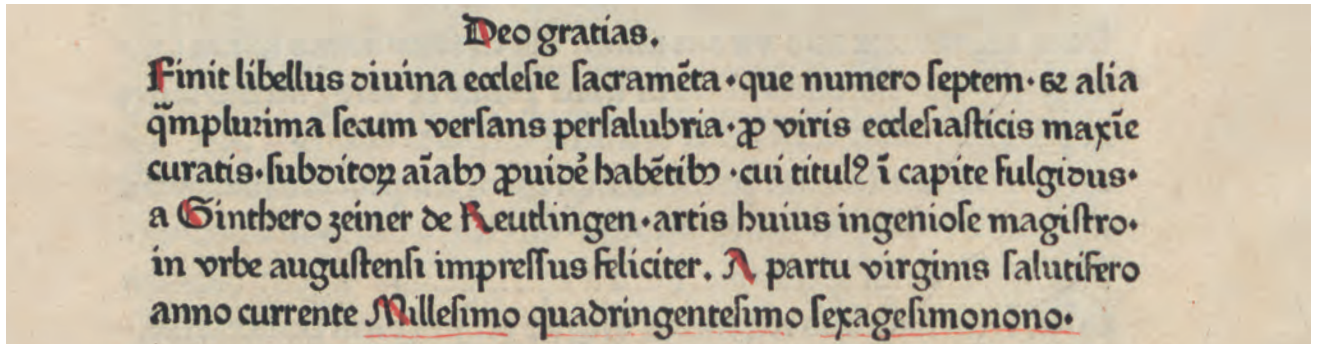 Deo gratias.
Finit libellus diuina ecclesie sacramēta·que numero septem·⁊ alia
q̄mplurima secum versans persalubria·ꝓ viris ecclesiasticis maxīe
curatis·subditoꝝ aīabꝫ ꝓuidē habētibꝫ·cui titulꝰ ī capite fulgidus·
a Ginthero zeiner de Reutlingen·artis huius ingeniose magistro·
in vrbe augustensi impressus feliciter. A partu virginis salutifero
anno currente Millesimo quadringentesimo sexagesimonono·